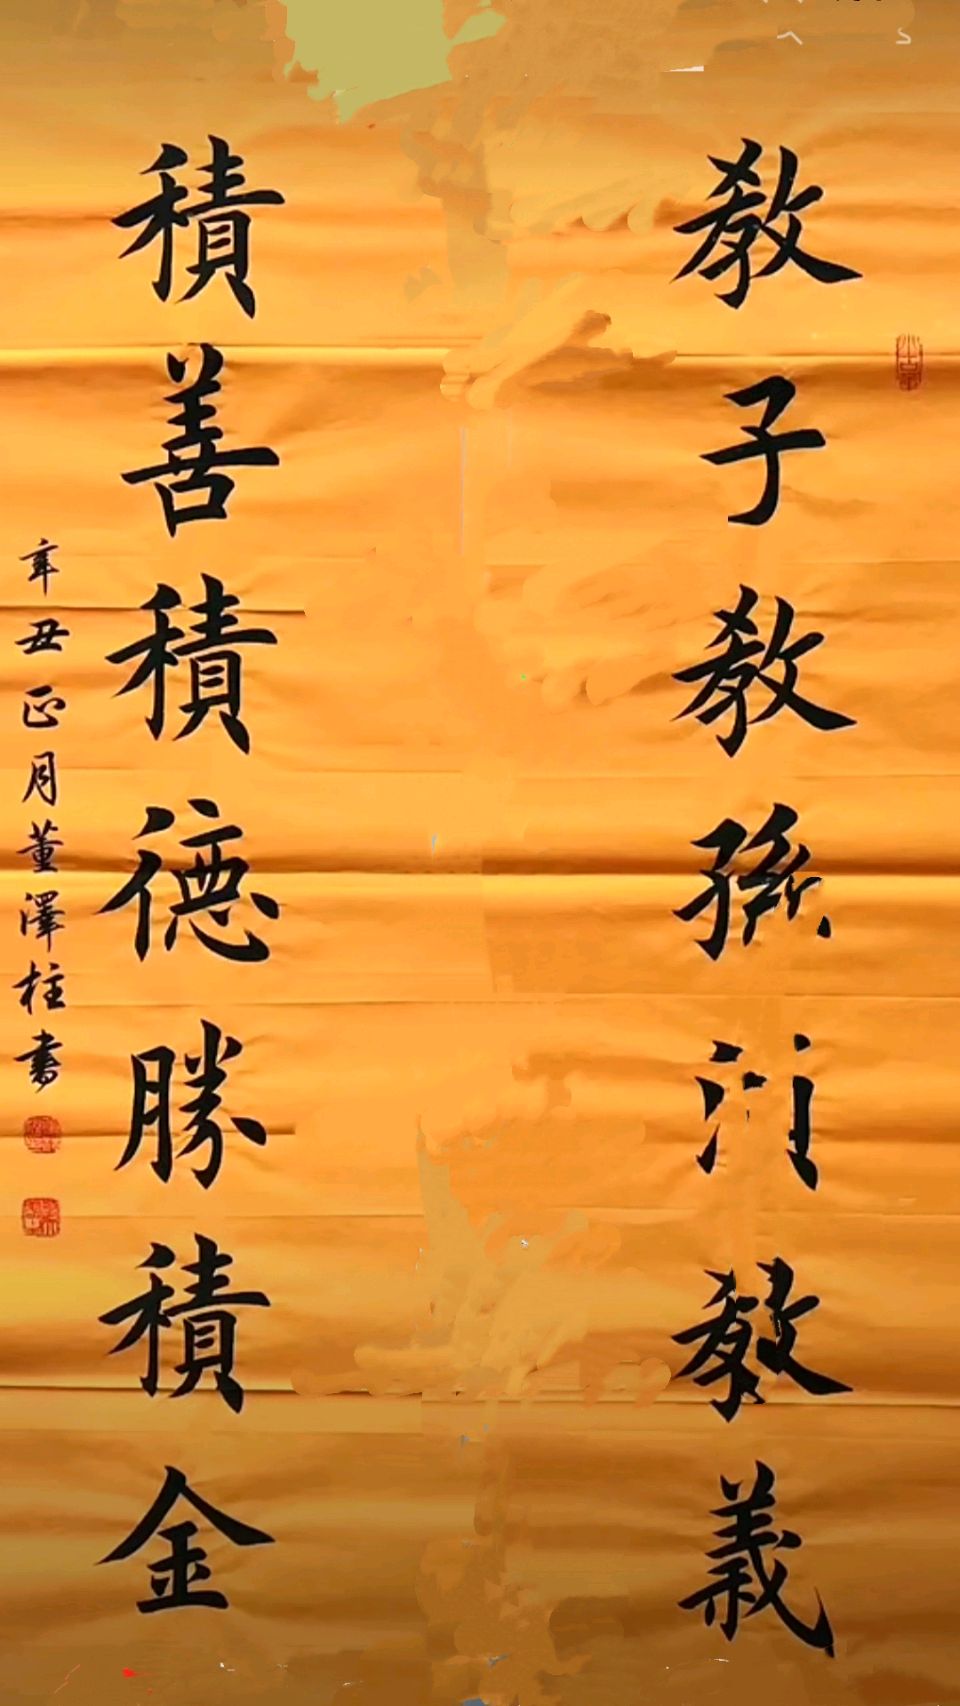 教子教孫門教義
積善積德勝積金
辛丑正月董澤柱書